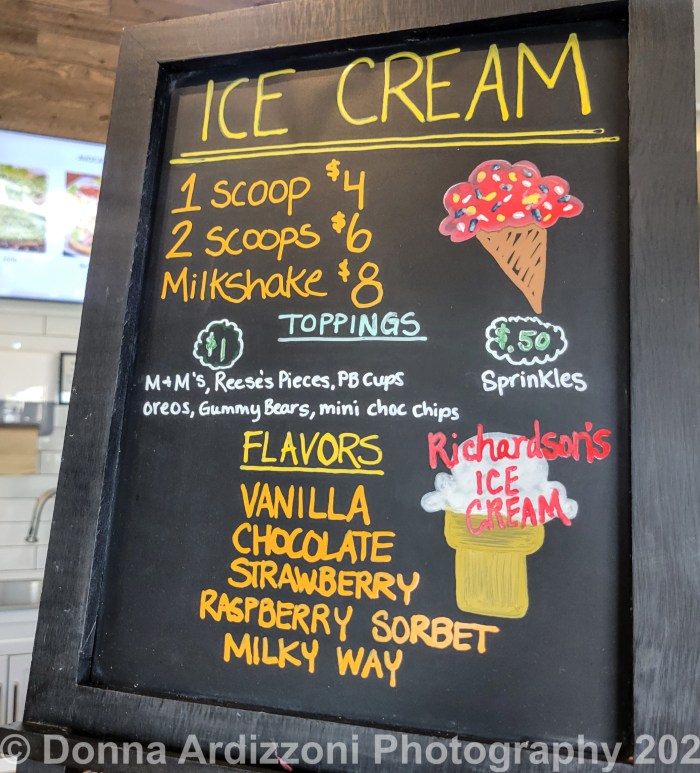 ICE CREAM
1 SCOOP $4
2 SCOOPS $6
Milkshake $8
TOPPINGS
$1
M+M's, Reese's Pieces, PB Cups
oreos, Gummy Bears, mini choc chips
$.50
Sprinkles
FLAVORS
VANILLA
CHOCOLATE
STRAWBERRY
RASPBERRY SORBET
MILKY WAY
Richardson's
ICE
CREAM
© Donna Ardizzoni Photography 202